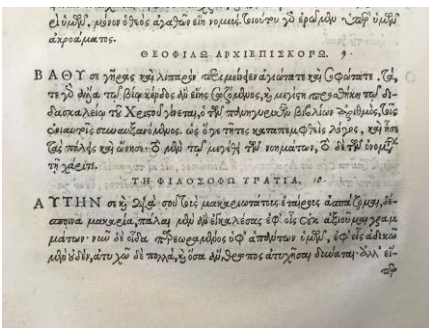 ρὶ ὑμῶν, μόνον ὁ θεὸς ἀγαθῶν εἴη νομεύς. τοιούτου γὰρ ἐρῶ μὲν ὑπὲρ ὑμῶν
ἀκροάματος.
ΘΕΟΦΙΛΩ ΑΡΧΙΕΠΙΣΚΟΠΩ. 9.
ΒΑΘΥ σε γῆρας καὶ λιπαρὸν περιμένει ἁγιώτατε καὶ σοφώτατε. τά,
τε γὰρ ἄλλα τῷ βίῳ κέρδος ἂν εἴης σωζόμενος, καὶ μεγίστη προσθήκη τῶν δι
δασκαλείων τοῦ Χριστοῦ γίνεται, ὁ τῶν πανηγυρικῶν βιβλίων ἀριθμὸς, τοῖς
ἐνιαυτοῖς συναυξανόμενος. ὡς ὅγε τῆτες καταπεμφθεὶς λόγος, καὶ ἧσε
τὰς πόλεις καὶ ὤνησε. τὸ μὲν τῷ μεγέθει τῶν νοημάτων, τὸ δὲ τῶν ὀνομάτων
τῇ χάριτι.
ΤΗ ΦΙΛΟΣΟΦΩ ΥΠΑΤΙΑ. 10.
ΑΥΤΗΝ σε καὶ διὰ σοῦ τοὺς μακαριωτάτους ἑταίρους ἀσπάζομαι, δέ-
σποινα μακαρία, πάλαι μὲν ἂν ἐγκαλέσας ἐφ' οἷς οὐκ ἀξιοῦμαι γραμ
μάτων. νῦν δὲ οἶδα παρεωραμένος ὑφ' ἁπάντων ὑμῶν, ἐφ' οἷς ἀδικῶ
μὲν οὐδέν, ἀτυχῶ δὲ πολλὰ, καὶ ὅσα ἄνθρωπος ἀτυχῆσαι δύναται. ἀλλ' εἴ-